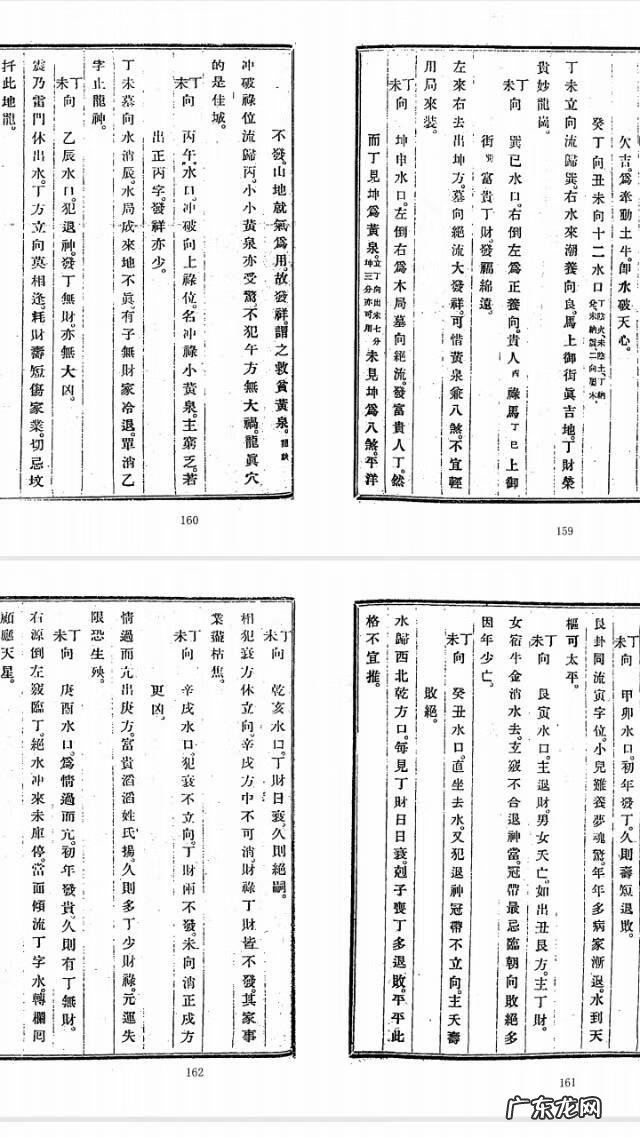 欠吉。爲牽動土牛。卽水破天心。
癸丁向丑未向十二水口 丁陰火、未陰土、丁納兌、未納震、二向屬木。
丁未立向流歸巽。右水來潮養向良。馬上御街眞吉地。丁財榮
貴妙龍崗。
丁未向 巽巳水口。右倒左爲正養向。貴人酉祿馬丁巳上御
街巽富貴丁財。發福綿遠。
左來右去出坤方。墓向絕流大發祥。可惜黃泉兼八煞。不宜輕
用局來裝。
丁未向 坤申水口。左倒右爲木局墓向絕流。發富貴人丁。然
而丁見坤爲黃泉。立丁向出未七分坤三分亦可用未見坤爲八煞。平洋
159
不發。山地就氣爲用。故發祥。謂之救貧黃泉。
冲破祿位流歸丙。小小黃泉亦受驚。不犯午方無大禍。龍眞穴
的是佳城。
丁未向 丙午水口。冲破向上祿位。名冲祿小黃泉。主窮乏。若
出正丙字。發祥亦少。
丁未墓向水消辰。水局成來地不眞。有子無財家冷退。單消乙
字止龍神。
丁未向 乙辰水口。犯退神。發丁無財。亦無大凶。
震乃雷門休出水。丁方立向莫相逢。耗財壽短傷家業。切忌墳
扦此地龍。
160
丁未向 甲卯水口。初年發丁久則壽短退敗。
艮卦同流寅字位。小兒難養夢魂驚。年年多病家漸退。水到天
樞可太平。
丁未向 艮寅水口。主退財。男女夭亡。如出丑艮方。主丁財。
女宿牛金消水去。玄竅不合退神當。冠帶最忌臨朝向敗絕多
因年少亡。
丁未向 癸丑水口。直坐去水。又犯退神冠帶不立向。主夭壽
敗絕。
水歸西北乾方口。每見丁財日日衰。剋子喪丁多退敗。平平此
格不宜推。
161
丁未向 乾亥水口。丁財日衰。久則絕嗣。
相犯衰方休立向。辛戌方中不可消。財祿丁財皆不發。其家事
業盡枯焦。
丁未向 辛戌水口。犯衰不立向。丁財兩不發。未向消正戌方
更凶。
情過而亢出庚方。富貴滔滔姓氏揚。久則多丁少財祿。元運失
限恐生殃。
丁未向 庚酉水口。爲情過而亢。初年發貴。久則有丁無財。
右源倒左竅臨丁。絕水冲來未庫停。當面傾流丁字水。轉欄囘
顧應天星。
162
广东龙网